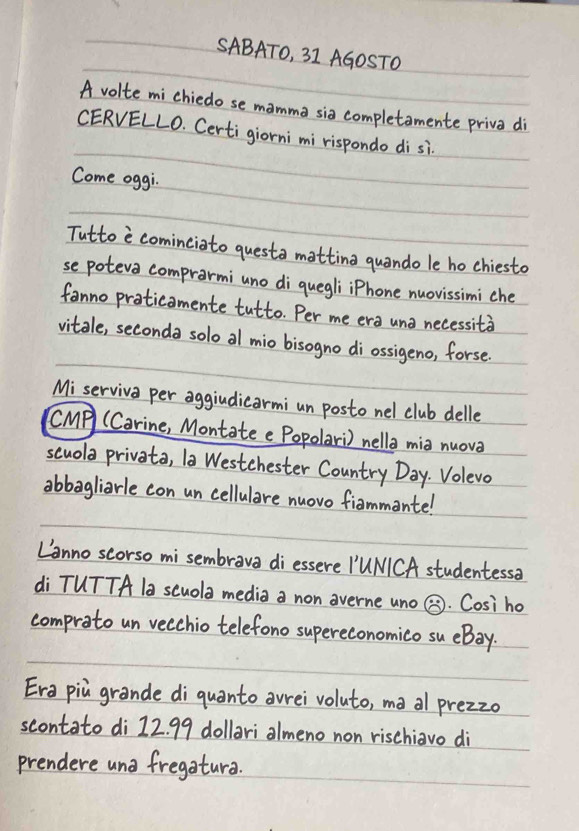 SABATO, 31 AGOSTO
A volte mi chiedo se mamma sia completamente priva di
CERVELLO. Certi giorni mi rispondo di sì.
Come oggi.
Tutto è cominciato questa mattina quando le ho chiesto
se poteva comprarmi uno di quegli iPhone nuovissimi che
fanno praticamente tutto. Per me era una necessità
vitale, seconda solo al mio bisogno di ossigeno, forse.
Mi serviva per aggiudicarmi un posto nel club delle
CMP (Carine, Montate e Popolari) nella mia nuova
scuola privata, la Westchester Country Day. Volevo
abbagliarle con un cellulare nuovo fiammante!
L'anno scorso mi sembrava di essere l'UNICA studentessa
di TUTTA la scuola media a non averne uno ☹. Così ho
comprato un vecchio telefono supereconomico su eBay.
Era più grande di quanto avrei voluto, ma al prezzo
scontato di 12.99 dollari almeno non rischiavo di
prendere una fregatura.